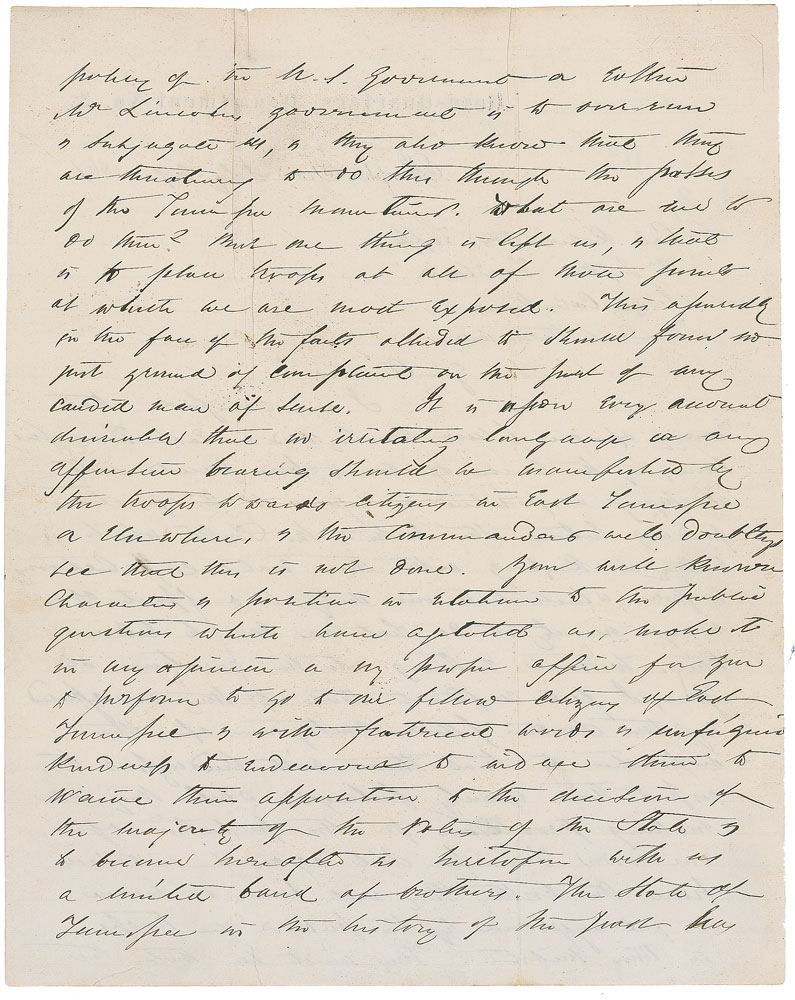 policy of the U. S. Government or rather
Mr Lincolns government is to over run
& Subjugate us, & they also know that they
are threatening to do this through the passes
of the Tennessee mountains. What are we to
do then? But one thing is left us, & that
is to place troops at all of those points
at which we are most exposed. This apparently
in the face of the facts alluded to should found no
just ground of complaint on the part of any
candid man of sense. It is upon every account
desirable that no irritating language or any
offensive bearing should be manifested by
the troops towards citizens in East Tennessee
or elsewhere, & the Commanders will doubtless
see that this is not done. Your well known
Character & position in relation to the public
questions which have agitated us, make it
in my opinion a my proper office for you
to perform to go to our fellow citizens of East
Tennessee & with fraternal words & unfeigned
kindness to endeavour to induce them to
waive their opposition to the decision of
the majority of the voters of the State &
to become hereafter as heretofore with us
a united band of brothers. The State of
Tennessee in the history of the past has